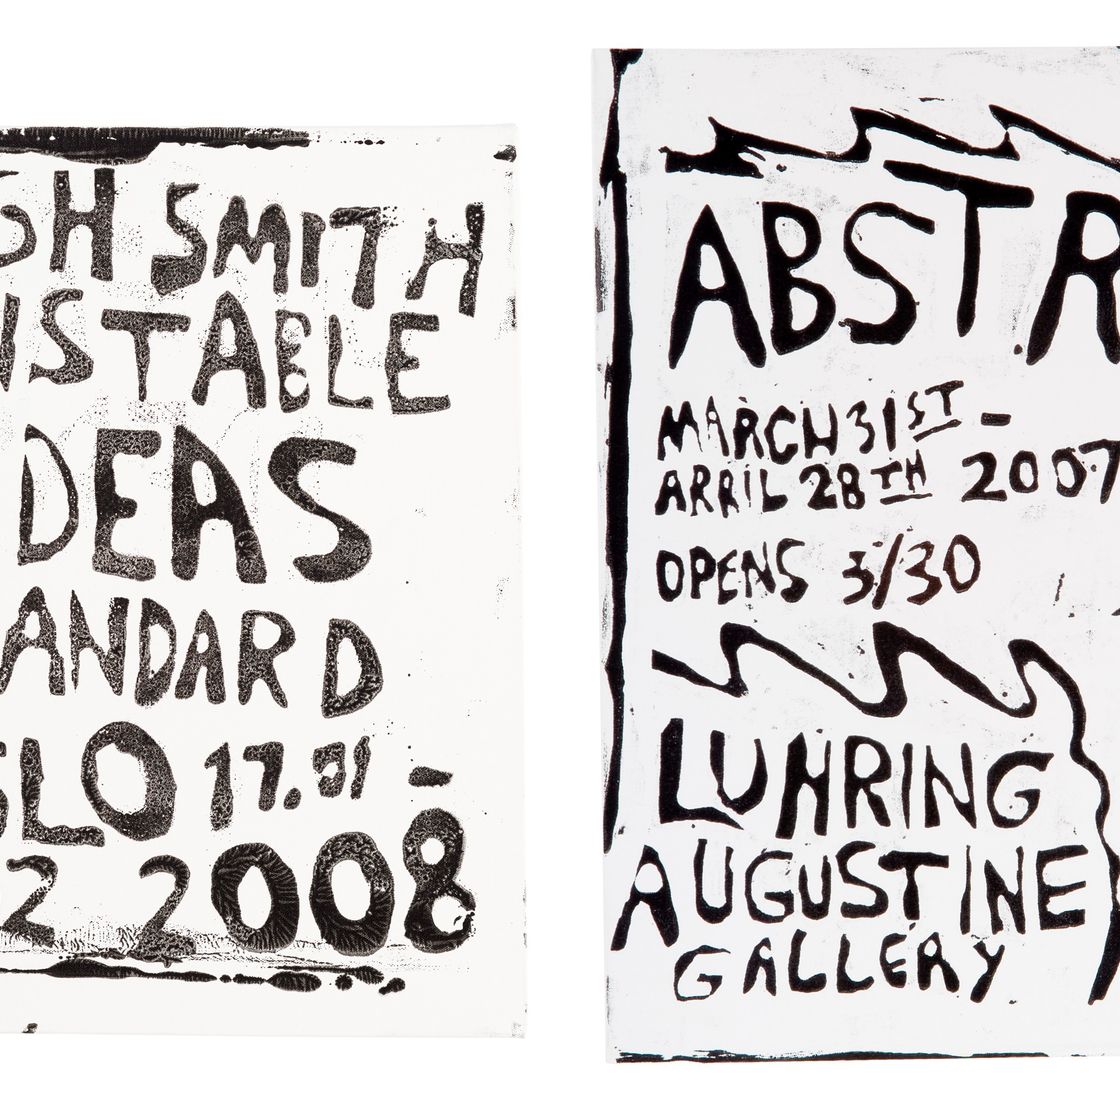 SH SMITH
NSTABLE
DEAS
ANDARD
SLO 17.01 -
02 2008
ABSTR
MARCH 31ST -
APRIL 28TH 2007
OPENS 3/30
LUHRING
AUGUSTINE
GALLERY